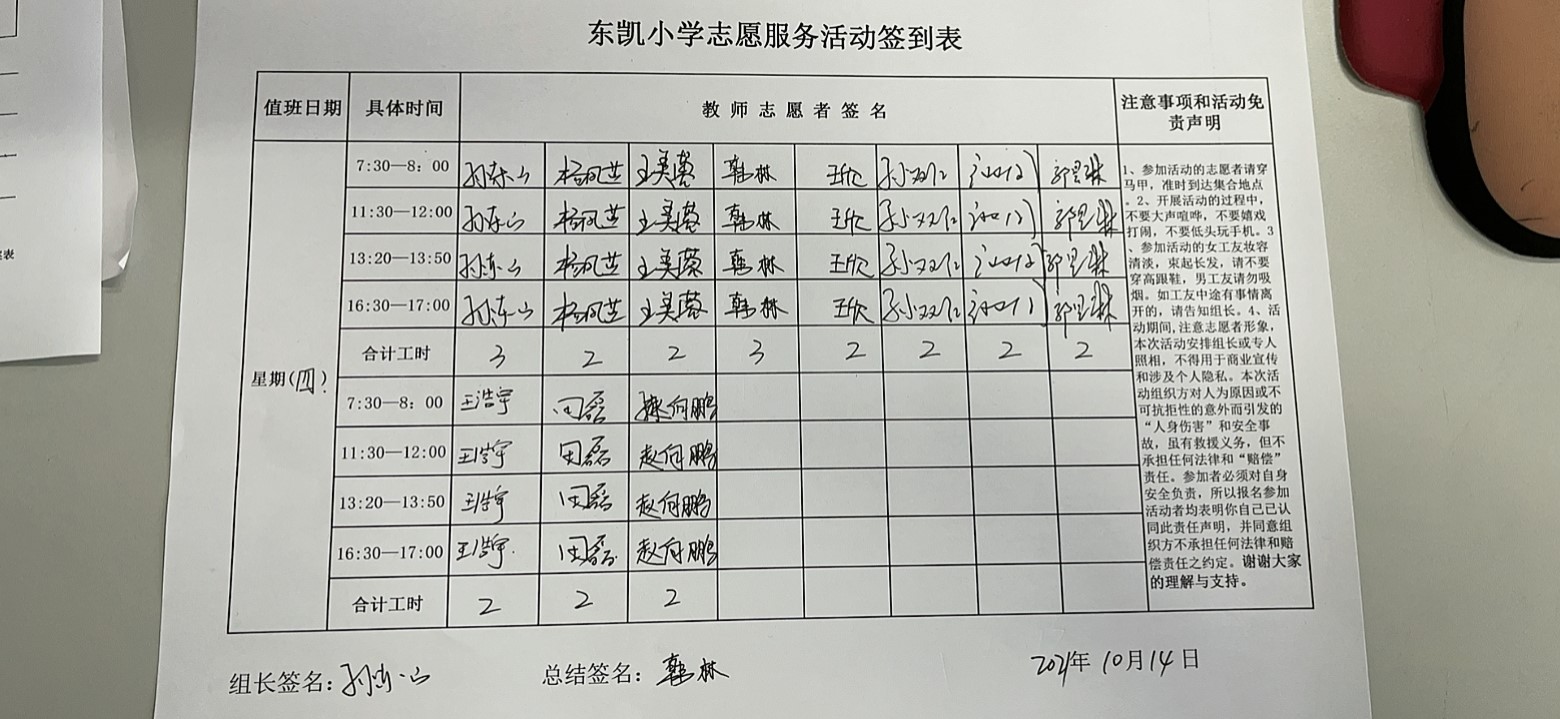 东凯小学志愿服务活动签到表
值班日期 具体时间 教师志愿者签名 注意事项和活动免责声明
星期(四)
7:30—8：00 孙东山 杨凤芝 王美蓉 韩林 王欣 孙双仁 郭思琳
11:30—12:00 孙东山 杨凤芝 王美蓉 韩林 王欣 孙双仁 郭思琳
13:20—13:50 孙东山 杨凤芝 王美蓉 韩林 王欣 孙双仁 郭思琳
16:30—17:00 孙东山 杨凤芝 王美蓉 韩林 王欣 孙双仁 郭思琳
合计工时 3 2 2 3 2 2 2 2
7:30—8：00 王浩宇 田磊 赵向鹏
11:30—12:00 王浩宇 田磊 赵向鹏
13:20—13:50 王浩宇 田磊 赵向鹏
16:30—17:00 王浩宇 田磊 赵向鹏
合计工时 2 2 2
1、参加活动的志愿者请穿
马甲，准时到达集合地点
。2、开展活动的过程中，
不要大声喧哗，不要嬉戏
打闹，不要低头玩手机。3
、参加活动的女工友妆容
清淡，束起长发，请不要
穿高跟鞋，男工友请勿吸
烟。如工友中途有事情离
开的，请告知组长。4、活
动期间,注意志愿者形象，
本次活动安排组长或专人
照相，不得用于商业宣传
和涉及个人隐私。本次活
动组织方对人为原因或不
可抗拒性的意外而引发的
“人身伤害”和安全事
故，虽有救援义务，但不
承担任何法律和“赔偿”
责任。参加者必须对自身
安全负责，所以报名参加
活动者均表明你自己已认
同此责任声明，并同意组
织方不承担任何法律和赔
偿责任之约定。谢谢大家
的理解与支持。
组长签名：孙东山 总结签名：韩林 2021年10月14日